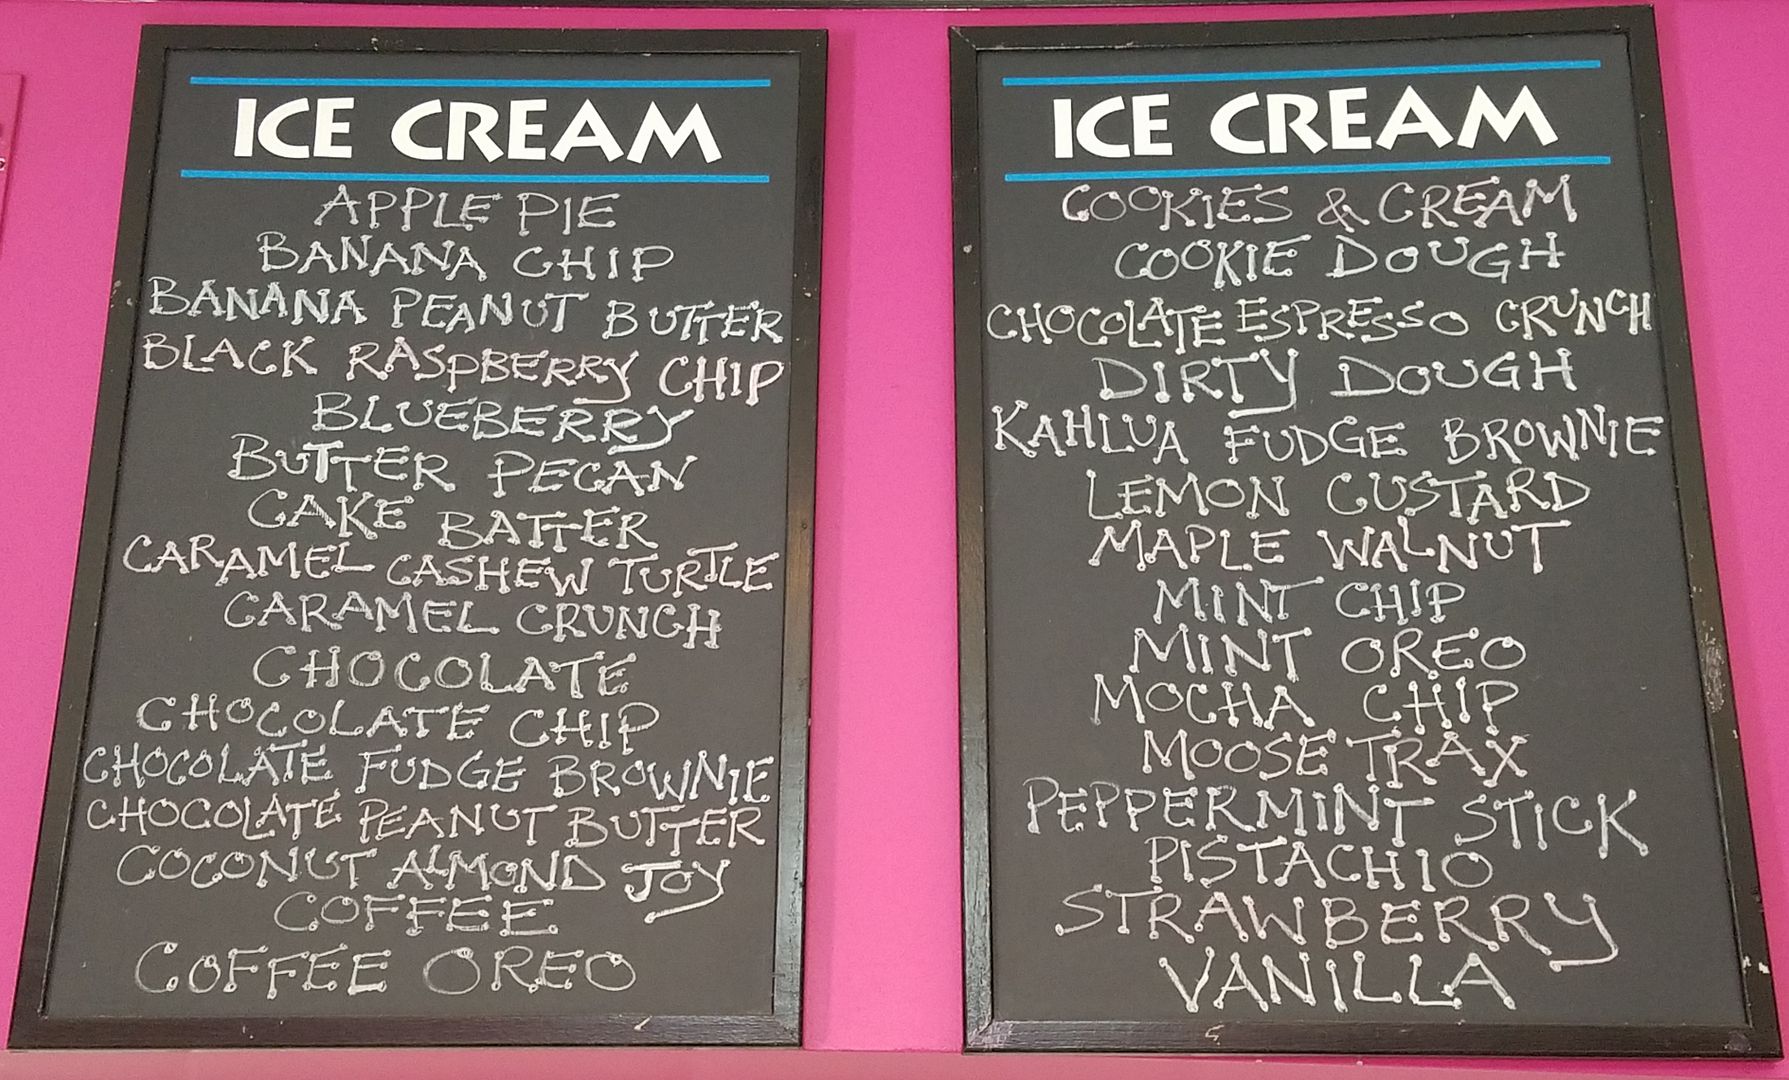 ICE CREAM
APPLE PIE
BANANA CHIP
BANANA PEANUT BUTTER
BLACK RASPBERRY CHIP
BLUEBERRY
BUTTER PECAN
CAKE BATTER
CARAMEL CASHEW TURTLE
CARAMEL CRUNCH
CHOCOLATE
CHOCOLATE CHIP
CHOCOLATE FUDGE BROWNIE
CHOCOLATE PEANUT BUTTER
COCONUT ALMOND JOY
COFFEE
COFFEE OREO
ICE CREAM
COOKIES & CREAM
COOKIE DOUGH
CHOCOLATE ESPRESSO CRUNCH
DIRTY DOUGH
KAHLUA FUDGE BROWNIE
LEMON CUSTARD
MAPLE WALNUT
MINT CHIP
MINT OREO
MOCHA CHIP
MOOSE TRAX
PEPPERMINT STICK
PISTACHIO
STRAWBERRY
VANILLA